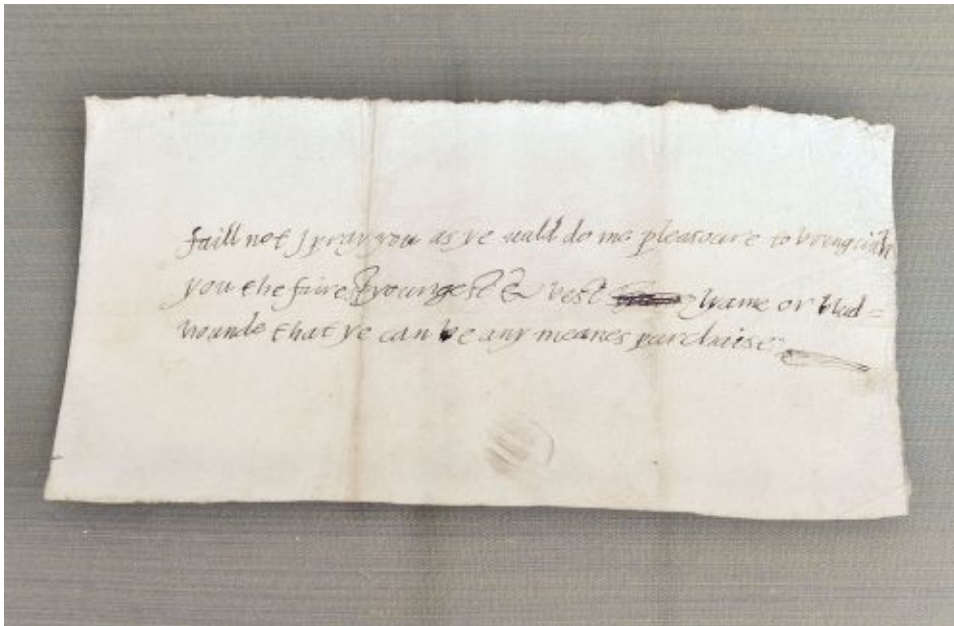 faill not I pray you as ye wald do me pleasoure to bring with
you the fairest youngest & best lyame or blud=
hounde that ye can be any meanes purchaise